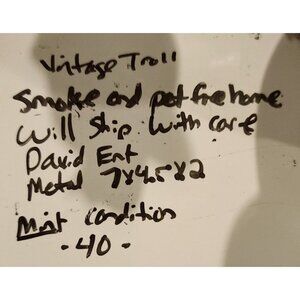 Vintage Troll
Smoke and pet free home
Will Ship With care
David Ent
Metal 7x4.5x2
Mint condition
- 40 -